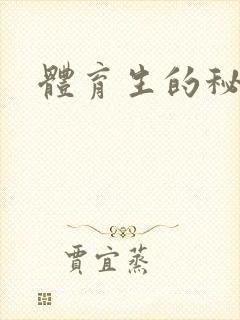 體育生的秘
賈宜蒸